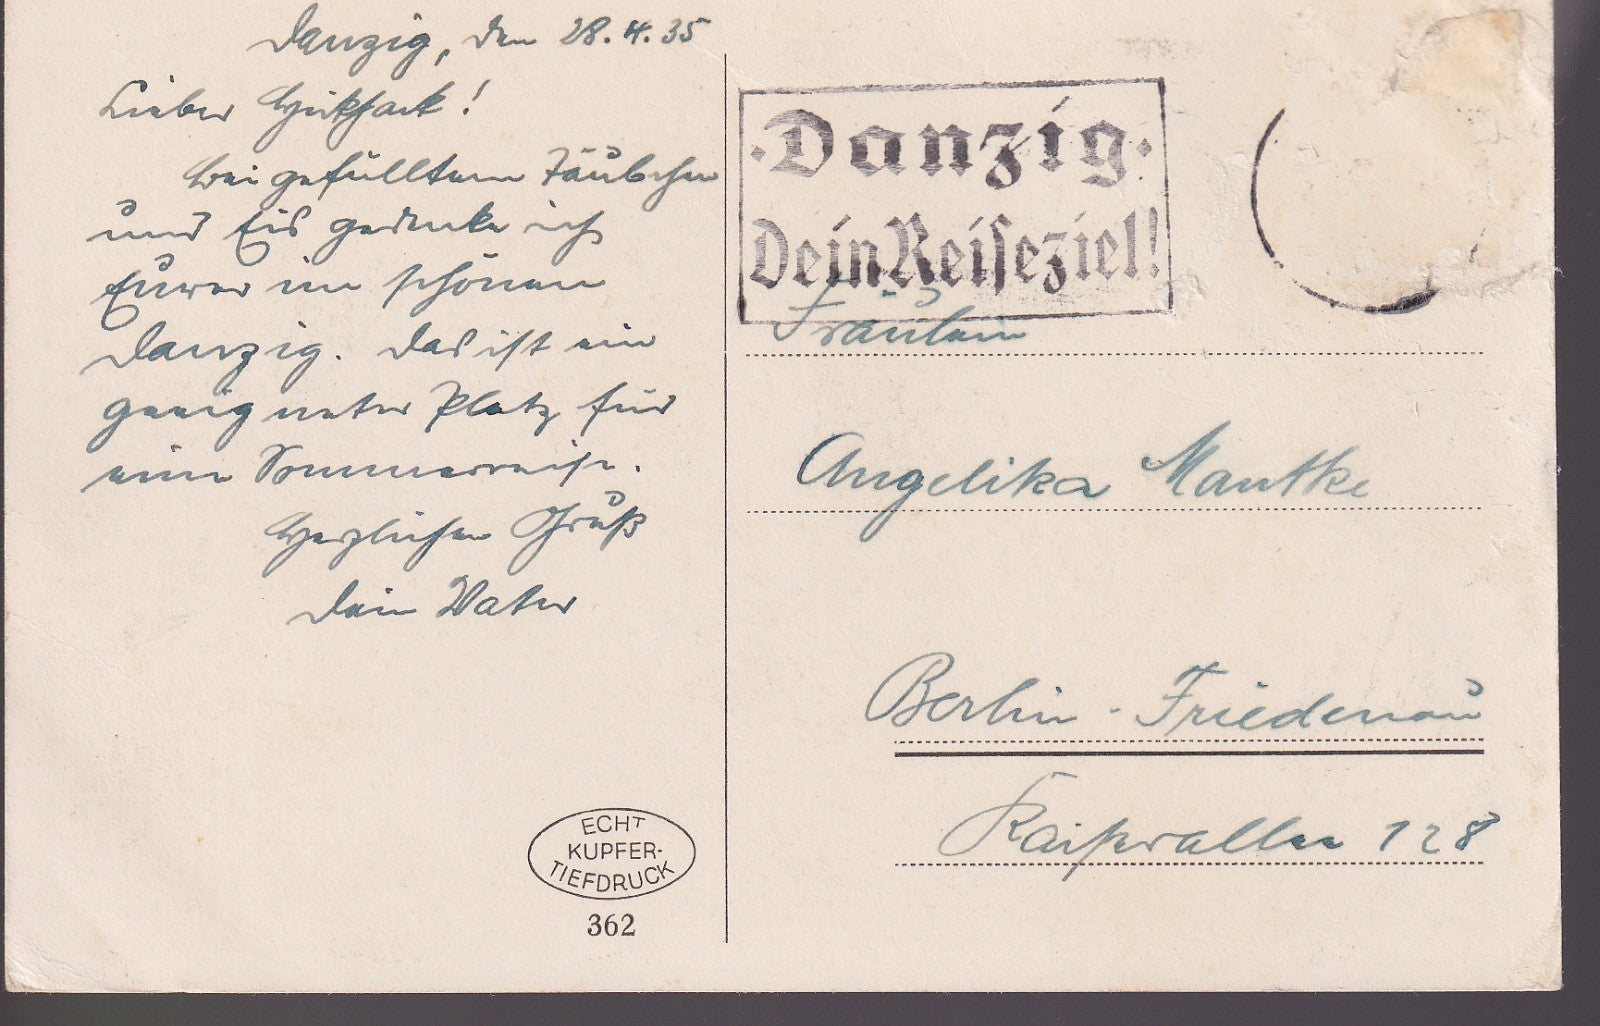 Danzig, den 28.4.35
Lieber
Bei gefülltem Täubchen
und Eis gedenke ich
Eurer im schönen
Danzig. Das ist ein
geeigneter Platz für
eine Sommerreise.
Herzlichen Gruß
Dein Vater
ECHT
KUPFER-
TIEFDRUCK
362
·Danzig·
Dein Reiseziel!
Fräulein
Angelika Mantke
Berlin-Friedenau
Kaiserallee 128